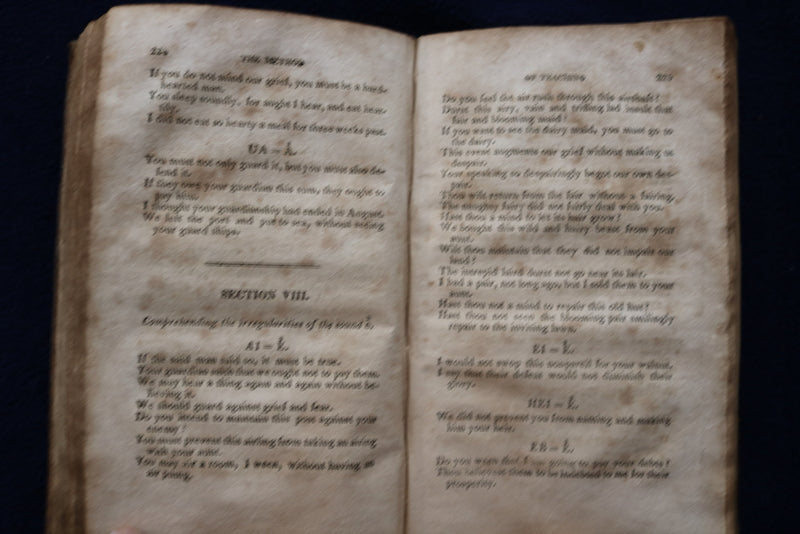 224 THE METHOD
If you do not mind our grief, you must be a hard-
hearted man.
You sleep soundly, for aught I hear, and eat hear-
tily.
I did not eat so hearty a meal for three weeks past.
UA =
You must not only guard it, but you must also de-
fend it.
If they owe your guardian this sum, they ought to
pay him.
I thought your guardianship had ended in August.
We left the port and put to sea, without seeing
your guard ships.
SECTION VIII.
Comprehending the irregularities of the sound
AI =
If the said man said so, it must be true.
Your guardian saith that we ought not to pay them.
We may hear a thing again and again without be-
lieving it.
We should guard against grief and fear.
Do you intend to maintain this post against your
enemy?
You must prevent this airling from taking an airing
with your aunt.
You may air a room, I ween, without having an
air pump.
OF TEACHING 225
Do you feel the air rush through this airshaft?
Durst this airy, vain and trifling lad insult that
fair and blooming maid?
If you want to see the dairy maid, you must go to
the dairy.
This event augments our grief without making us
despair.
Your speaking so despairingly begat our own des-
pair.
Thou wilt return from the fair without a fairing.
The naughty fairy did not fairly deal with you.
Hast thou a mind to let its hair grow?
We bought this wild and hairy beast from your
aunt.
Wilt thou maintain that they did not impair our
land?
The intrepid hind durst not go near its lair.
I had a pair, not long ago, but I sold them to your
aunt.
Hast thou not a mind to repair this old hut?
Hast thou not seen the blooming pair smilingly
repair to the inviting lawn.
EI =
I would not swop this nonpareil for your walnut.
I say that their defeat would not diminish their
glory.
HEI =
We did not prevent you from aiming and making
him your heir.
EB =
Do you ween that I am going to pay your debts?
Thou believest them to be indebted to me for their
prosperity.